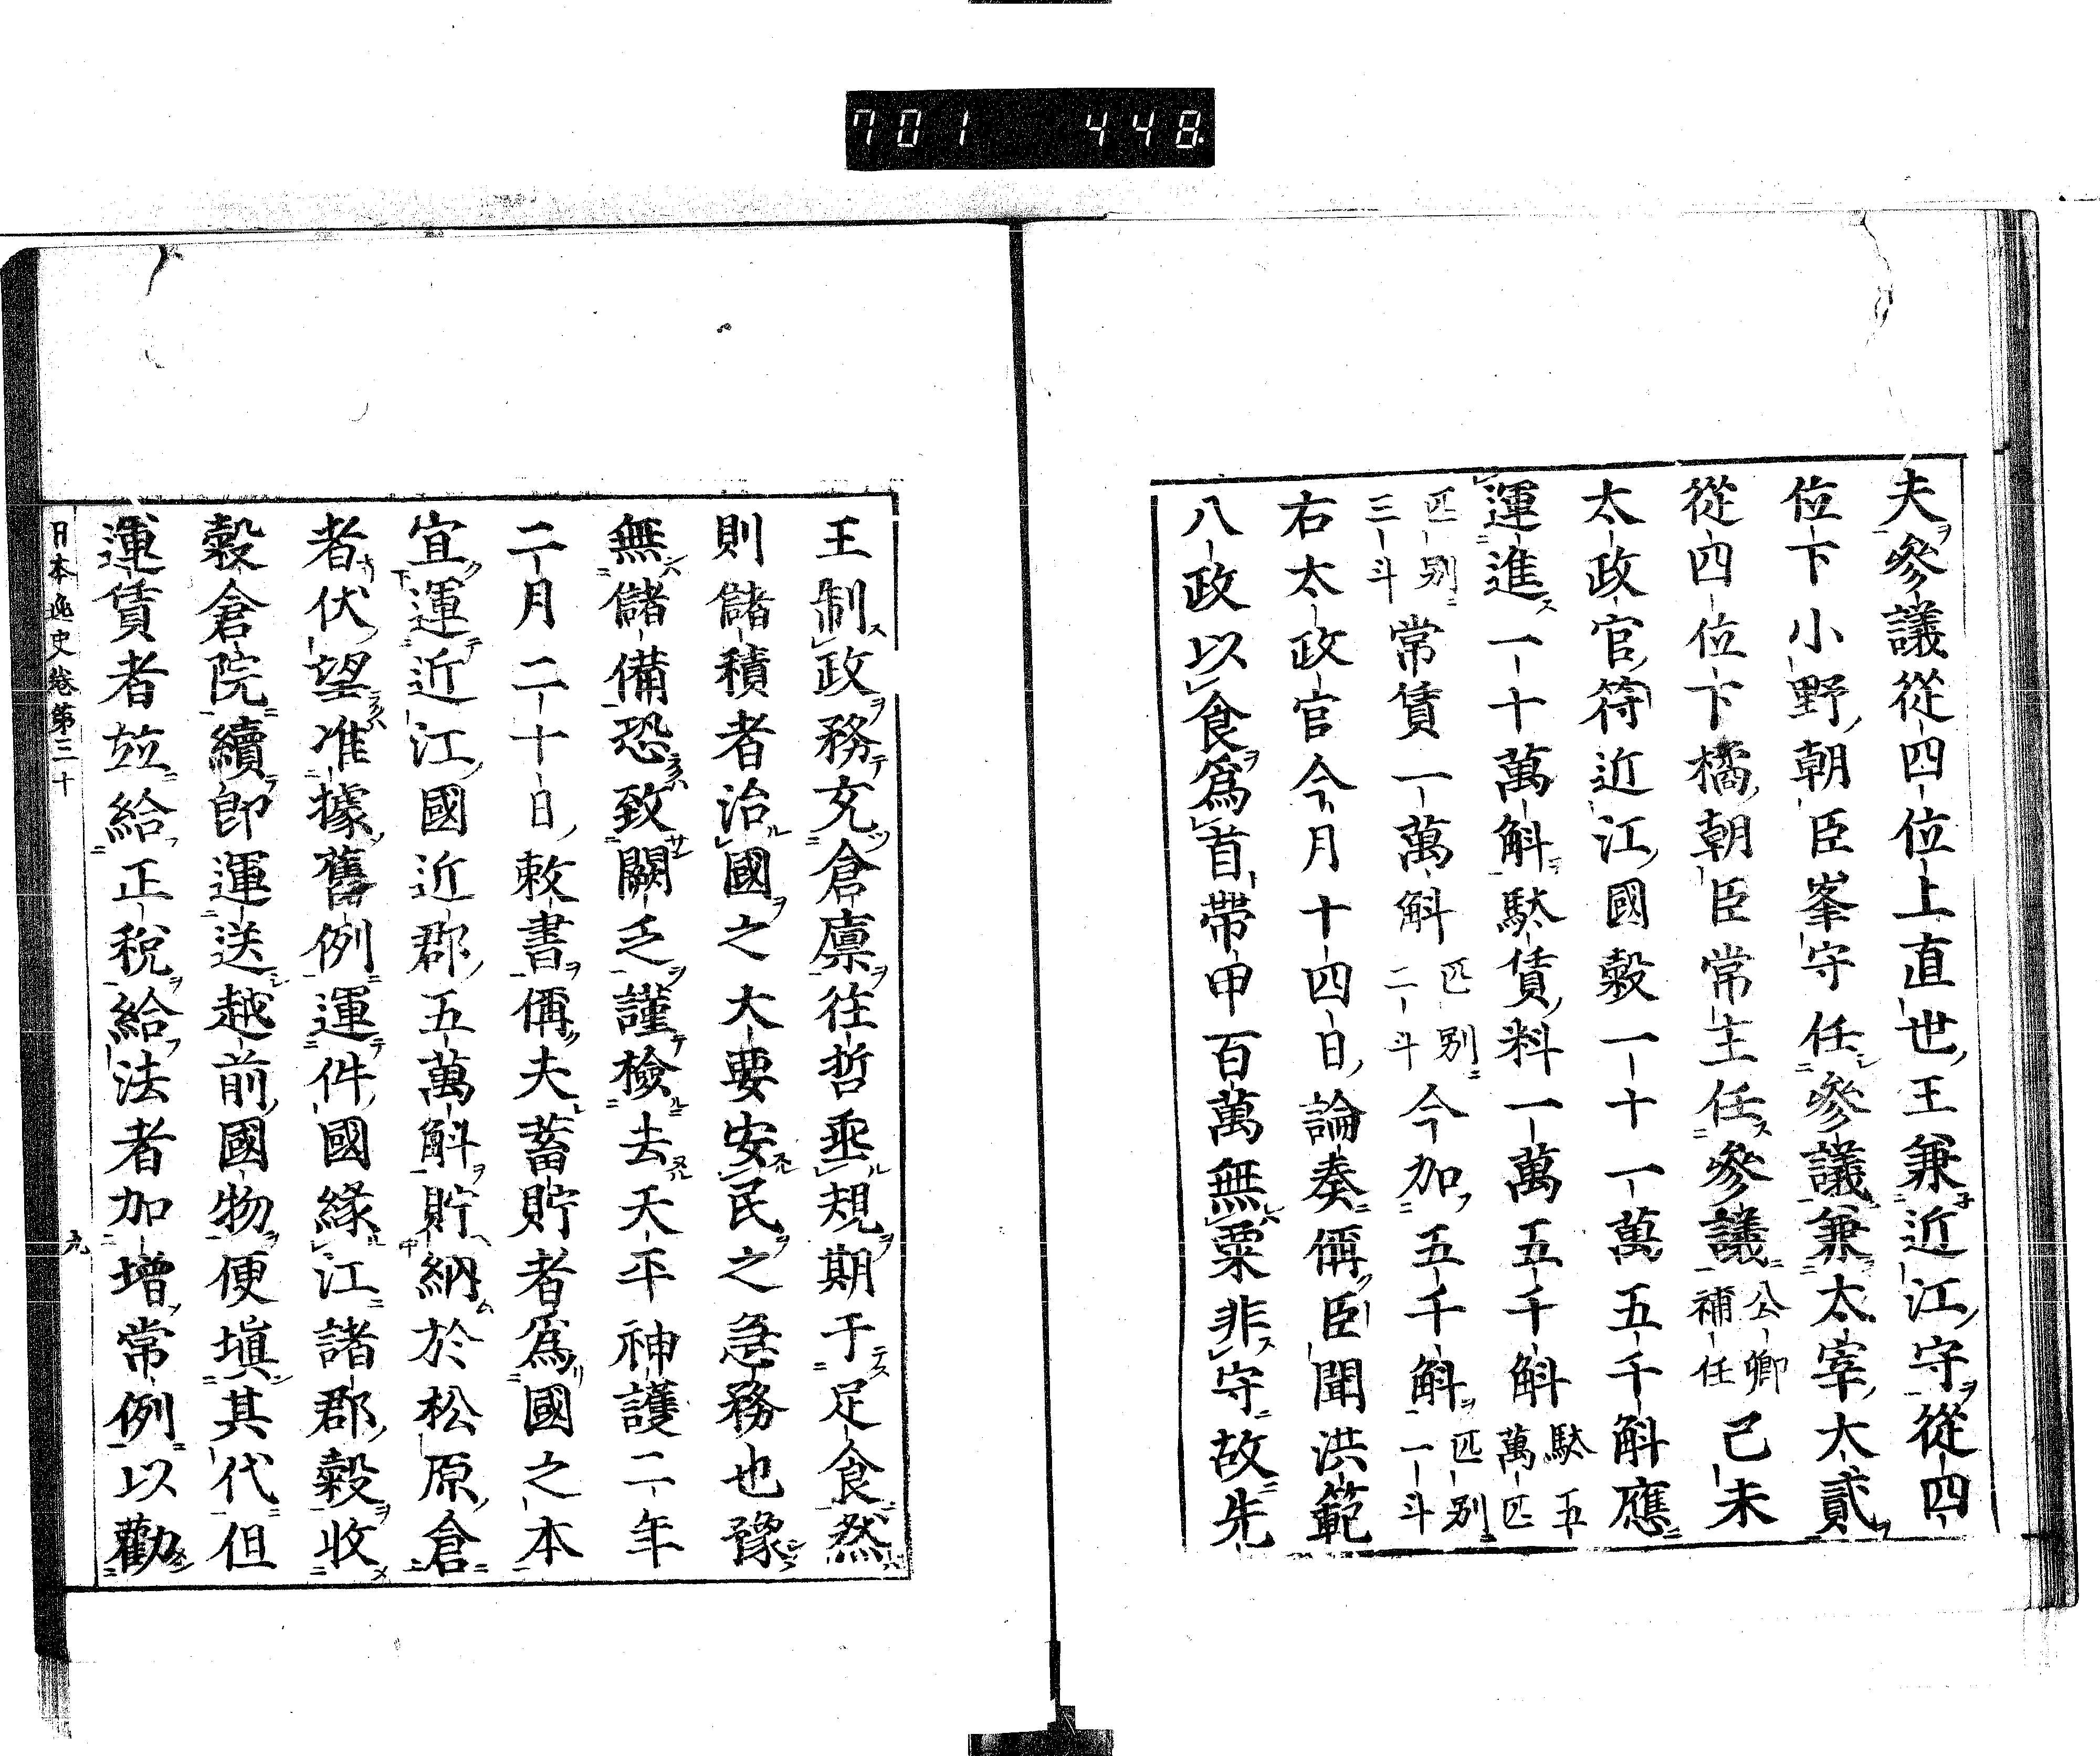 701 448
夫參議從四位上直世王兼近江守從四
位下小野朝臣峯守任參議兼太宰太貳
從四位下橘朝臣常主任參議公卿補任己未
太政官符近江國穀一十一萬五千斛應
運進一十萬斛駄賃料一萬五千斛駄五萬匹
匹別三斗常賃一萬斛匹別二斗今加五千斛匹別一斗
右太政官今月十四日論奏偁臣聞洪範
八政以食爲首帶甲百萬無粟非守故先
王制政務充倉廪往哲垂規期于足食然
則儲積者治國之大要安民之急務也豫
無儲備恐致闕乏謹檢去天平神護二年
二月二十日敕書偁夫蓄貯者爲國之本
宜運近江國近郡五萬斛貯納於松原倉
者伏望准據舊例運件國緣江諸郡穀收
穀倉院續卽運送越前國物便塡其代但
運賃者並給正税給法者加增常例以勸
日本逸史卷第三十
九